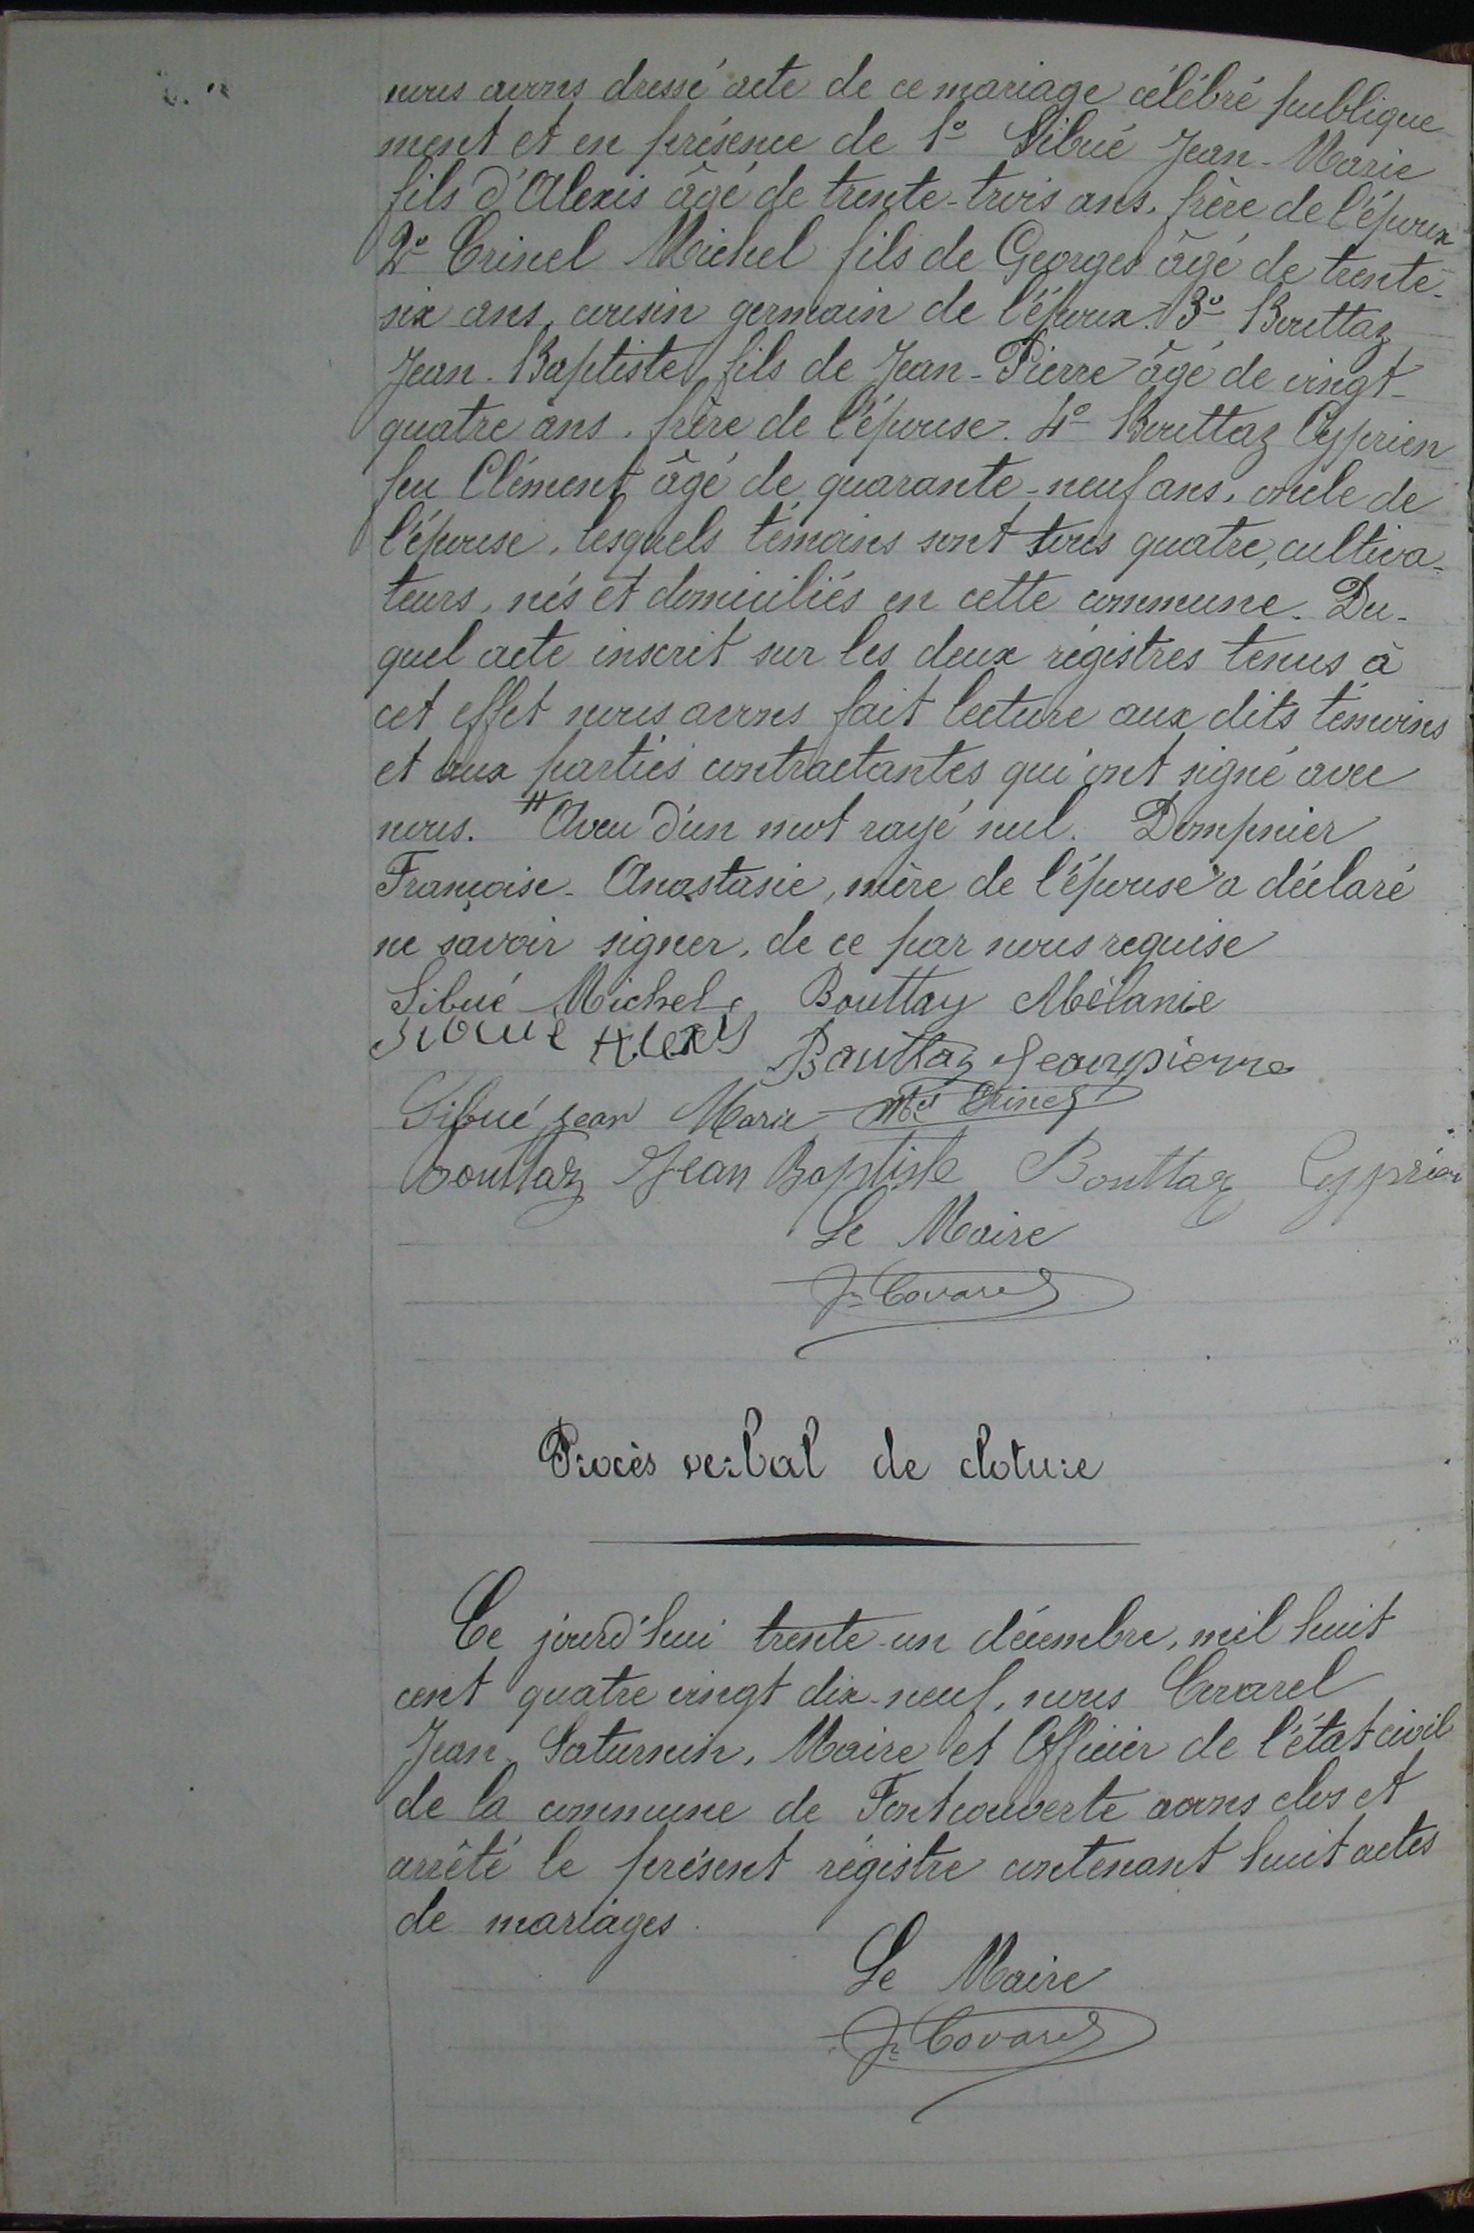 nous avons dressé acte de ce mariage célébré publique
ment et en présence de 1° Sibué Jean-Marie
fils d'Alexis âgé de trente-trois ans, frère de l'époux
2° Crinel Michel fils de Georges âgé de trente-
six ans, cousin germain de l'époux. 3° Bouttaz
Jean-Baptiste, fils de Jean-Pierre âgé de vingt-
quatre ans, frère de l'épouse. 4° Bouttaz Cyprien
feu Clément âgé de quarante-neuf ans, oncle de
l'épouse, lesquels témoins sont tous quatre, cultiva-
teurs, nés et domiciliés en cette commune. Du-
quel acte inscrit sur les deux régistres tenus à
cet effet nous avons fait lecture aux dits témoins
et aux parties contractantes qui ont signé avec
nous. # Aveu d'un mot rayé nul. Dompnier
Françoise-Anastasie, mère de l'épouse a déclaré
ne savoir signer, de ce par nous requise
Sibué Michel Bouttaz Mélanie
Sibué Alexis Bouttaz Jeanpierre
Sibué Jean Marie Mel Crinel
Bouttaz Jean Baptiste Bouttaz Cyprien
Le Maire
Jn Covarel
Procès verbal de cloture
Ce jourd'hui trente-un décembre, mil huit
cent quatre vingt dix-neuf, nous Covarel
Jean-Saturnin, Maire et Officier de l'état civil
de la commune de Fontcouverte avons clos et
arrêté le présent régistre contenant huit actes
de mariages.
Le Maire
Jn Covarel